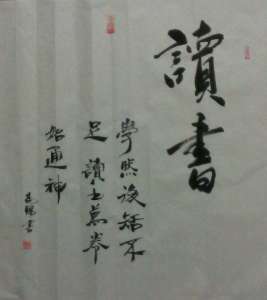 讀書
學然後知不
足讀書萬卷
始通神